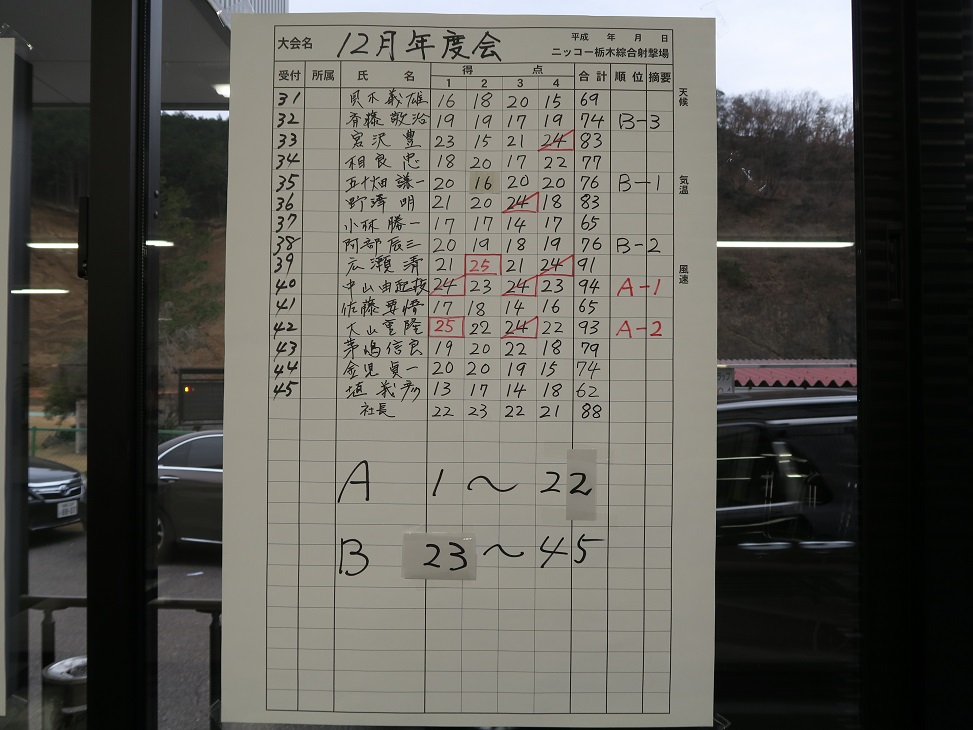 大会名 12月年度会 平成 年 月 日
ニッコー栃木綜合射撃場
受付 所属 氏 名 得 点 合計 順位 摘要
1 2 3 4
天候
気温
風速
31 貝木義雄 16 18 20 15 69
32 斉藤敬治 19 19 17 19 74 B-3
33 宮沢豊 23 15 21 24 83
34 相良忠 18 20 17 22 77
35 五十畑謙一 20 16 20 20 76 B-1
36 野澤明 21 20 24 18 83
37 小林勝一 17 17 14 17 65
38 阿部辰三 20 19 18 19 76 B-2
39 広瀬清 21 25 21 24 91
40 中山由起枝 24 23 24 23 94 A-1
41 佐藤 17 18 14 16 65
42 大山重隆 25 22 24 22 93 A-2
43 茅嶋信良 19 20 22 18 79
44 金児貞一 20 20 19 15 74
45 義彦 13 17 14 18 62
社長 22 23 22 21 88
A 1〜22
B 23〜45